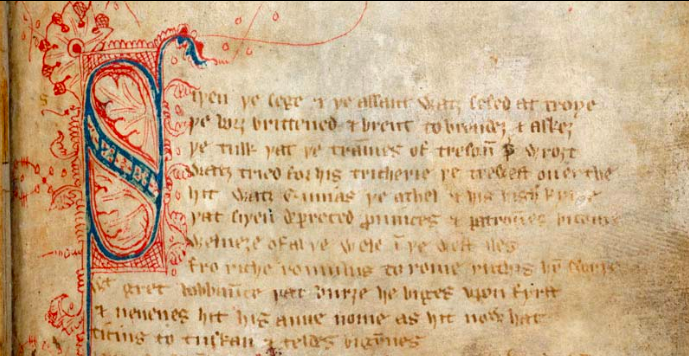 Siþen þe sege & þe assaut watz sesed at troye
þe borȝ brittened & brent to brondez & askez
þe tulk þat þe trām̄es of tresoū þ̛ wroȝt
watz tried for his tricherie þe trewest on erthe
hit watz Ennias þe athel & his highe kynde
þat siþen depreced prouinces & patrounes bicome
welneȝe of al þe wele ī þe west iles
fro riche romulus to rome ricchis hȳ swyþe
wᵗ gret bobbaūce þat burȝe he biges vpon fyrst
& neuenes hit his aune nome as hit now hat
ticius to tuskan & teldes bigȳnes